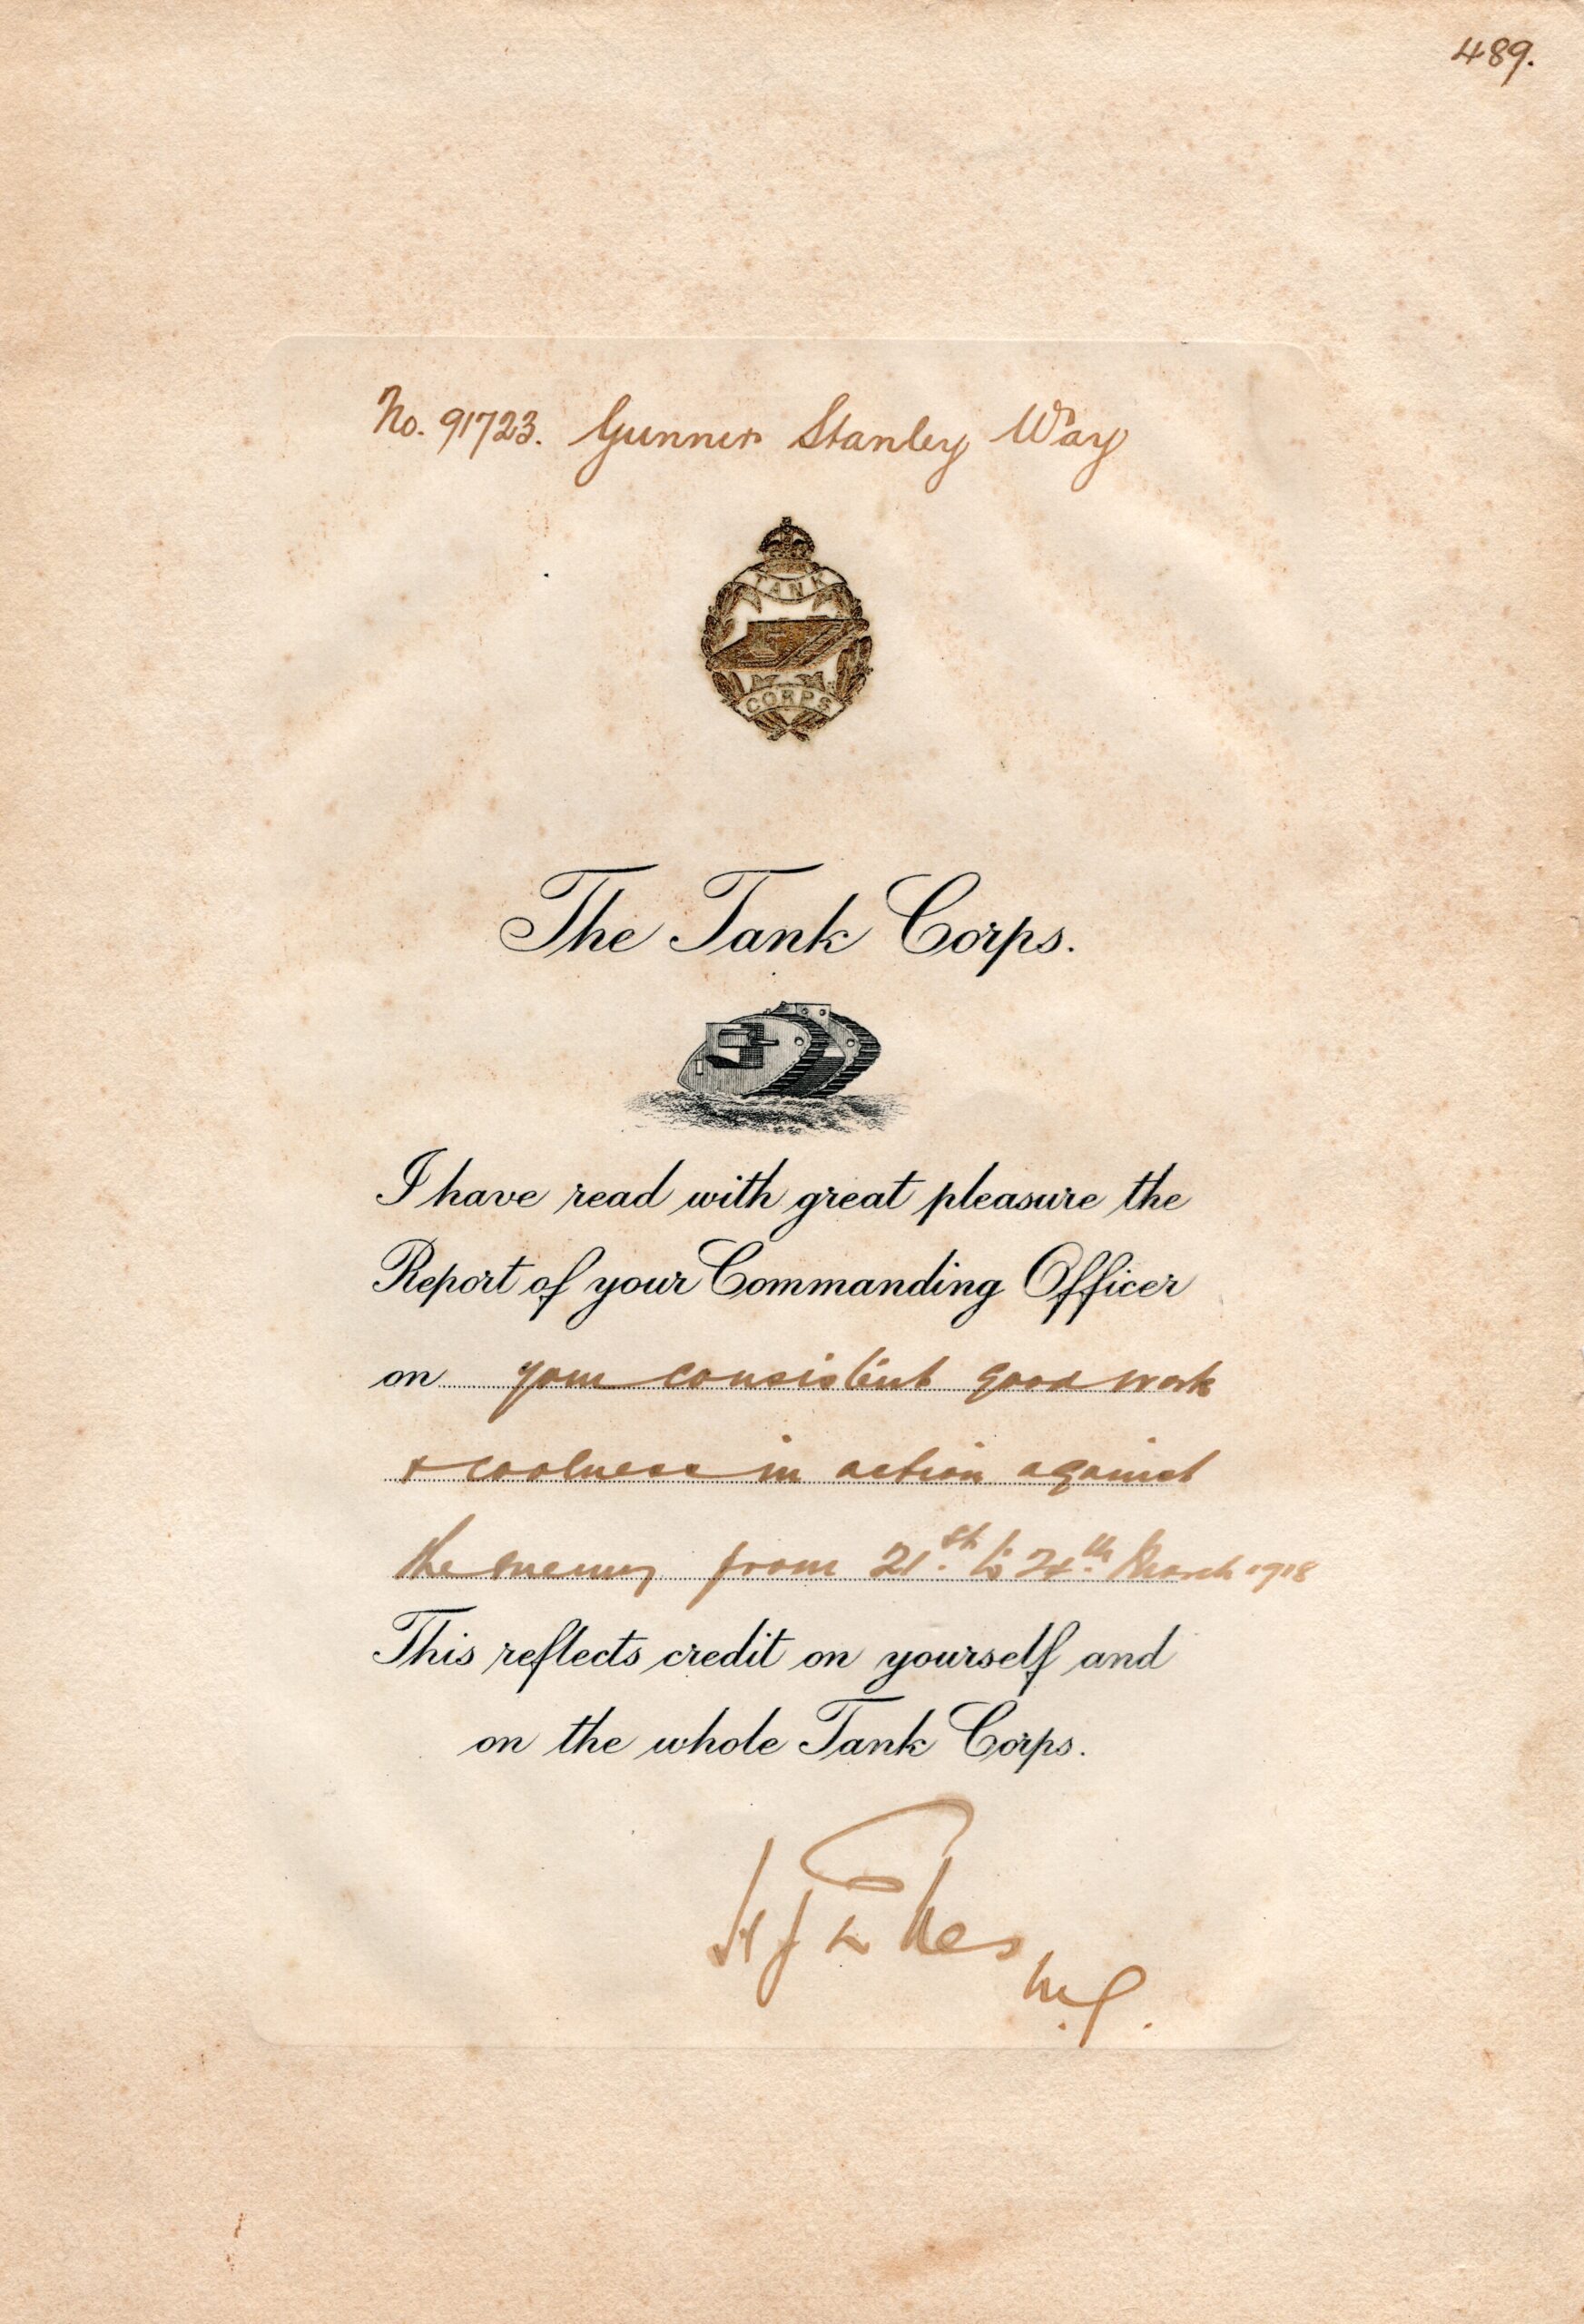 489.
No. 91723. Gunner Stanley Way
TANK
CORPS
The Tank Corps.
I have read with great pleasure the
Report of your Commanding Officer
on your consistent good work
& coolness in action against
the enemy from 21st to 24th March 1918
This reflects credit on yourself and
on the whole Tank Corps.
H J Elles
M.G.